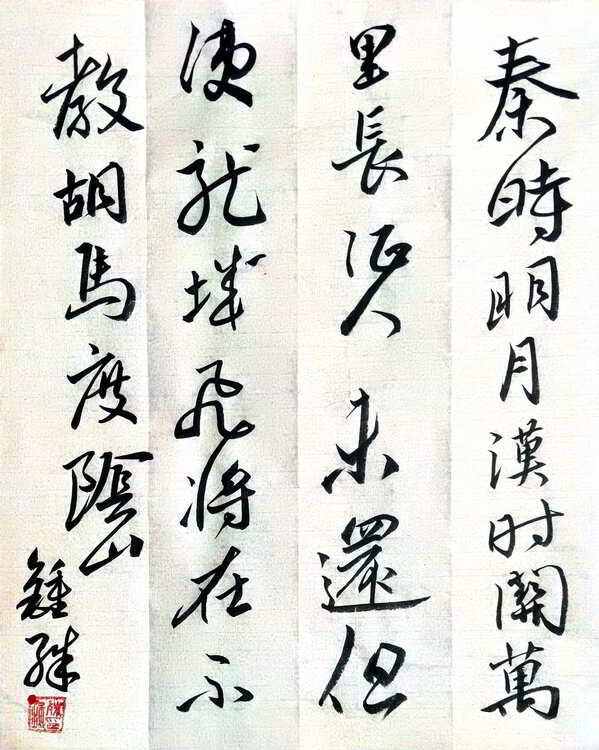 秦時明月漢时關萬
里長征人未還但
使龍城飛将在不
教胡馬度陰山
鍾